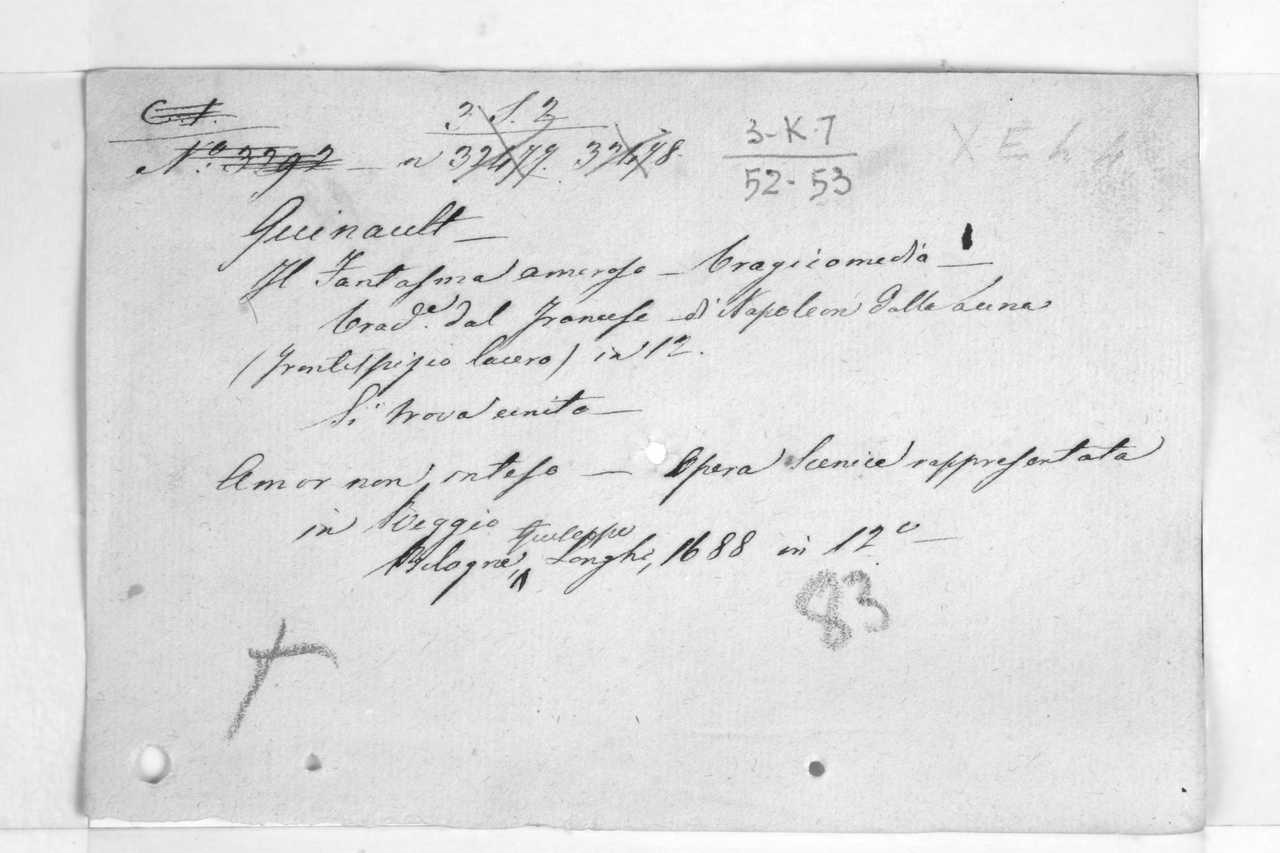 C.T. 3. S. 2 3-K-7
N.º 3292 — n 32477. 32478. 52-53 X E h 4
Quinault —
Il Fantasma amoroso — Tragicomedia —
trad.e dal Francese di Napoleon Dalla Luna
(frontespizio lacero) in 12.
Si trova unito —
Amor non inteso — Opera Scenica rappresentata
in Reggio
Bologna, Giuseppe Longhi, 1688 in 12.º —
83